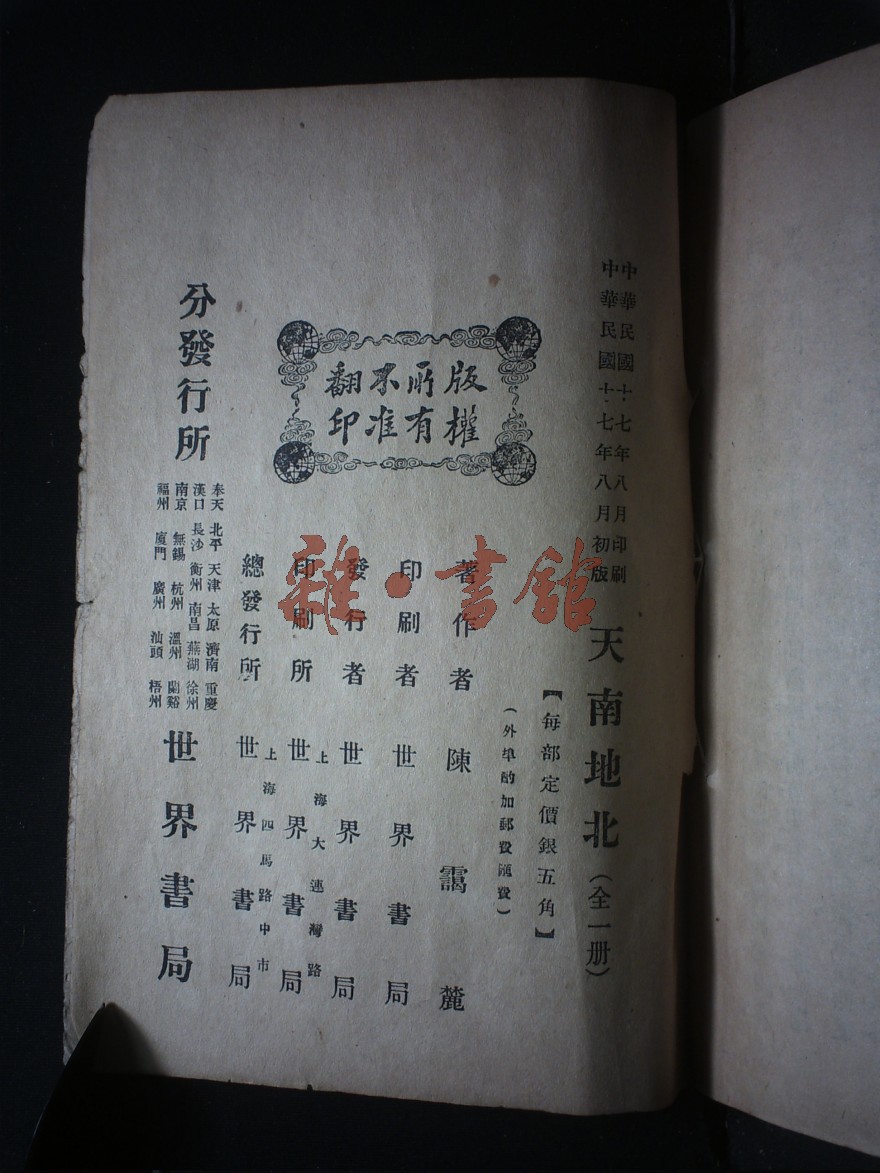 中華民國十七年八月印刷
中華民國十七年八月初版
天南地北（全一册）
【每部定價銀五角】
（外埠酌加郵費匯費）
版權
所有
不准
翻印
著作者 陳靄麓
印刷者 世界書局
發行者 世界書局
上海大連灣路
印刷所 世界書局
上海四馬路中市
總發行所 世界書局
分發行所
奉天 北平 天津 太原 濟南 重慶
漢口 長沙 衡州 南昌 蕪湖 徐州
南京 無錫 杭州 溫州 蘭谿
福州 廈門 廣州 汕頭 梧州
世界書局
雜·書館